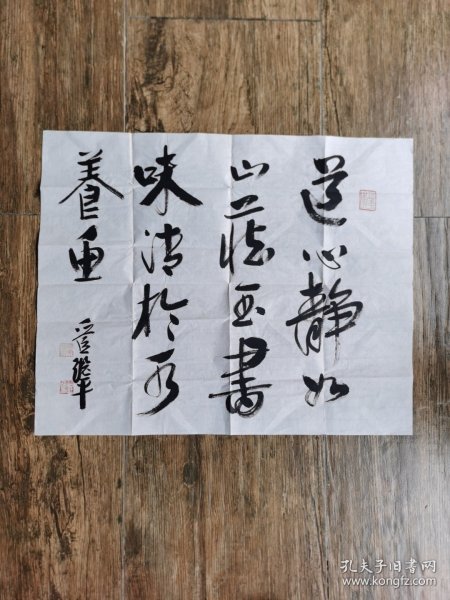 道心静如
山藏玉書
味清於水
養魚
管繼平
孔夫子旧书网
www.kongfz.com